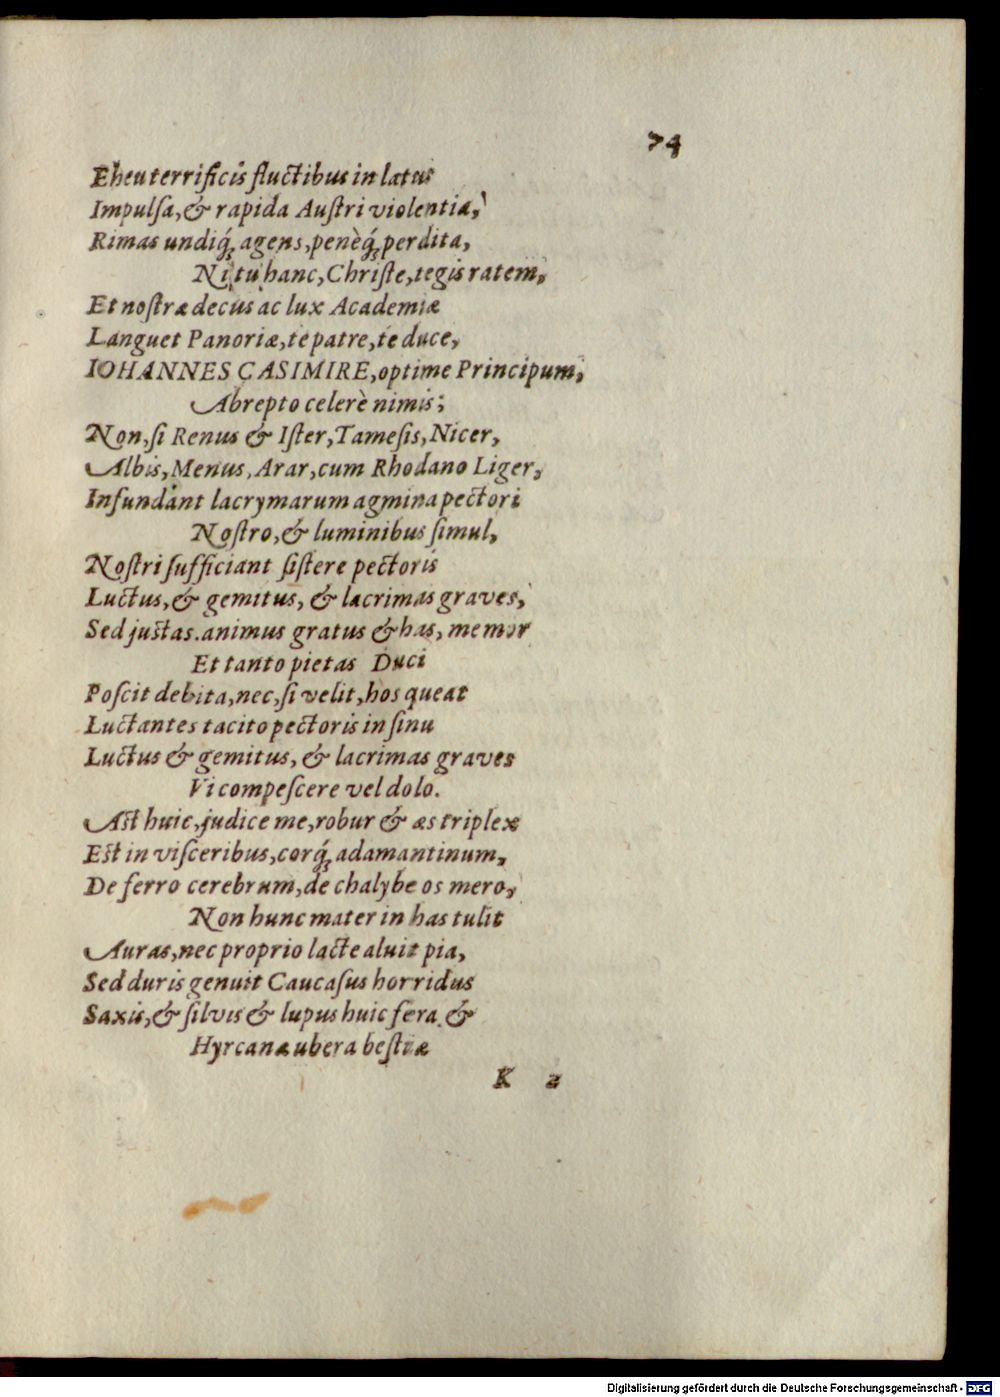 74
Eheu terrificis fluctibus in latus
Impulsa, & rapida Austri violentia,
Rimas undiq́;, agens, penèq́; perdita,
Ni tu hanc, Christe, tegis ratem,
Et nostræ decus ac lux Academiæ
Languet Panoriæ, te patre, te duce,
IOHANNES CASIMIRE, optime Principum,
Abrepto celerè nimis;
Non, si Renus & Ister, Tamesis, Nicer,
Albis, Menus, Arar, cum Rhodano Liger,
Infundant lacrymarum agmina pectori
Nostro, & luminibus simul,
Nostri sufficiant sistere pectoris
Luctus, & gemitus, & lacrimas graves,
Sed justas. animus gratus & has, memor
Et tanto pietas Duci
Poscit debita, nec, si velit, hos queat
Luctantes tacito pectoris in sinu
Luctus & gemitus, & lacrimas graves
Vi compescere vel dolo.
Ast huic, judice me, robur & æs triplex
Est in visceribus, corq́; adamantinum,
De ferro cerebrum, de chalybe os mero,
Non hunc mater in has tulit
Auras, nec proprio lacte aluit pia,
Sed duris genuit Caucasus horridus
Saxis, & silvis & lupus huic fera &
Hyrcanæ ubera bestiæ
K 2
Digitalisierung gefördert durch die Deutsche Forschungsgemeinschaft - DFG